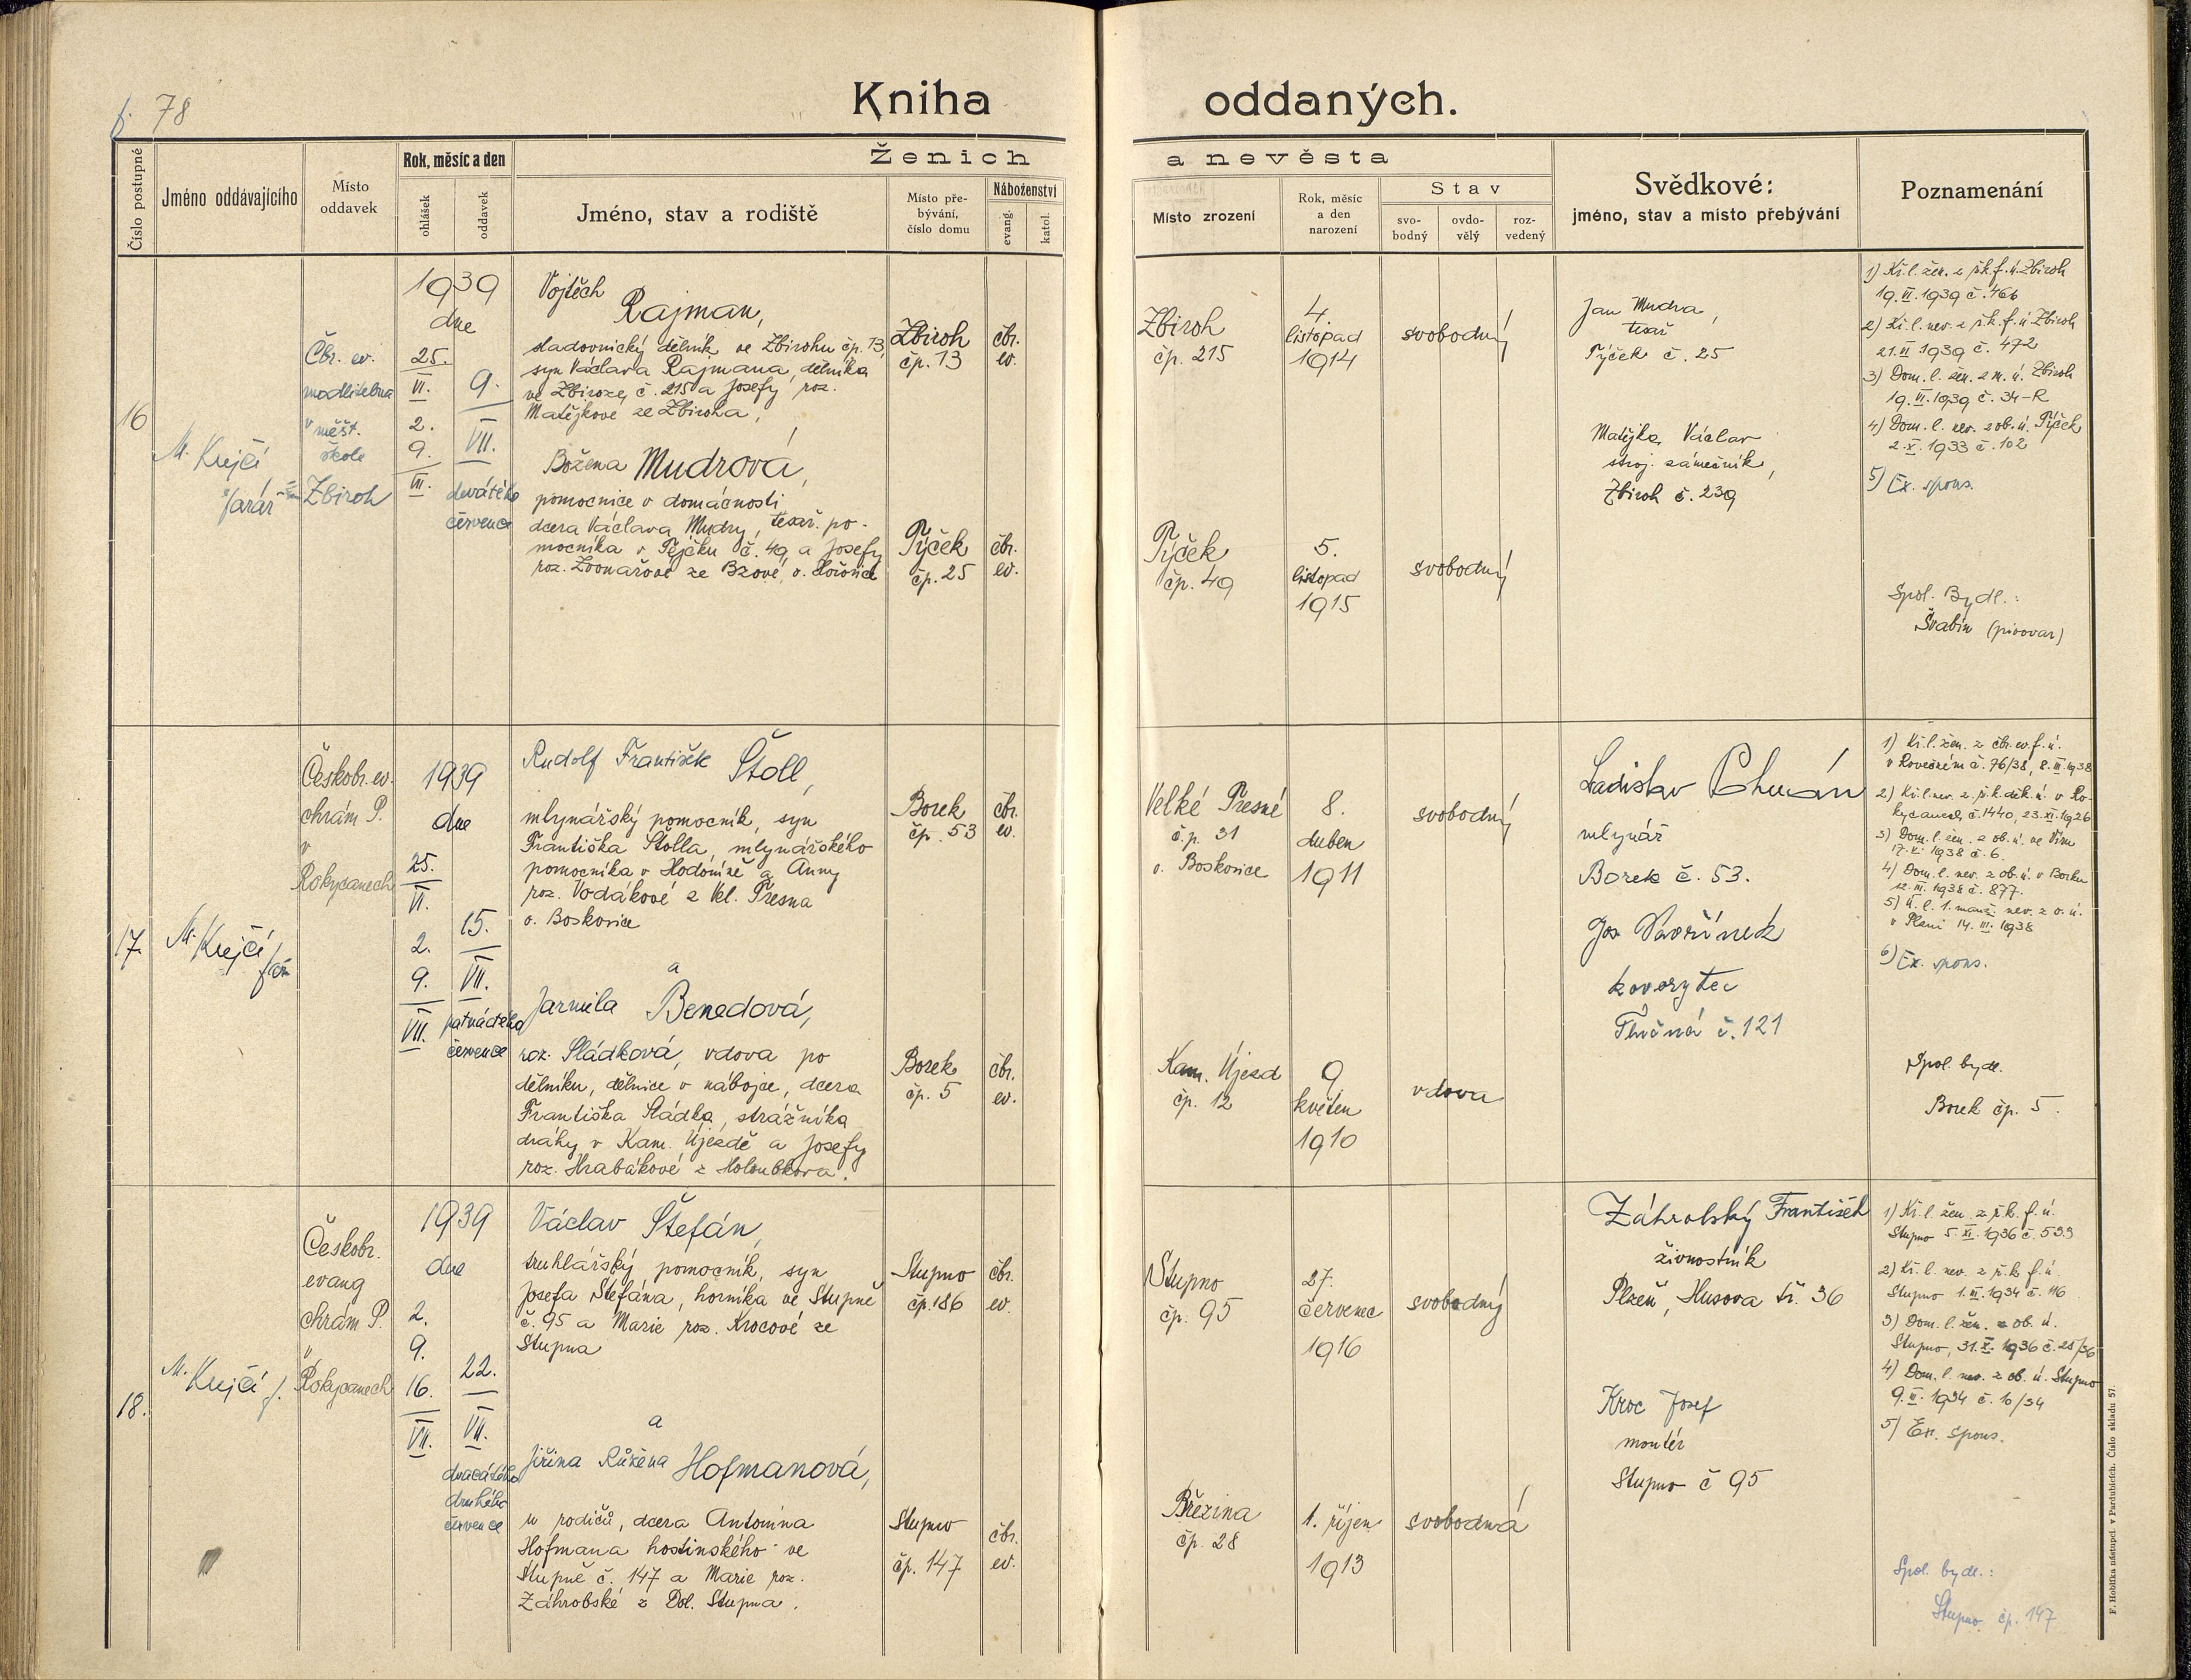 f. 78
Kniha oddaných.
Číslo postupné
Jméno oddávajícího
Místo
oddavek
Rok, měsíc a den
ohlášek
oddavek
Ženich
a nevěsta
Jméno, stav a rodiště
Místo pře-
bývání,
číslo domu
Náboženství
evang.
katol.
Místo zrození
Rok, měsíc
a den
narození
Stav
svo-
bodný
ovdo-
vělý
roz-
vedený
Svědkové:
jméno, stav a místo přebývání
Poznamenání
16
M. Krejčí
farář
Čbr. ev.
modlitebna
v měšt.
škole
Zbiroh
1939
dne
25.
VI.
2.
9.
VII.
9.
VII.
devátého
července
Vojtěch
Rajman,
sladovnický dělník ve Zbirohu čp. 13,
syn Václava Rajmana, dělníka
ve Zbiroze, č. 215 a Josefy roz.
Matějkove ze Zbiroha,
Božena Mudrová,
pomocnice v domácnosti
dcera Václava Mudry, tesař. po-
mocníka v Týčku č. 49, a Josefy
roz. Zvonařové ze Bzové, o. Hořovice
Zbiroh
čp. 13
čbr.
ev.
Týček
čp. 25
čbr.
ev.
Zbiroh
čp. 215
4.
listopad
1914
svobodný
Týček
čp. 49
5.
listopad
1915
svobodný
Jan Mudra,
tesař
Týček č. 25
Matějka Václav
stroj. zámečník,
Zbiroh č. 239
1) Kř. l. žen. z ř. k. f. ú. Zbiroh
19. VI. 1939 č. 466
2) Kř. l. nev. z ř. k. f. ú Zbiroh
21. VI 1939 č. 472
3) Dom. l. žen. z m. ú. Zbiroh
19. VI. 1939 č. 34-R
4) Dom. l. nev. z ob. ú. Týček
2. X. 1933 č. 102
5) Ex. spons.
Spol. Bydl.:
Švabín (pivovar)
17.
M. Krejčí
far.
Českobr. ev.
chrám P.
v
Rokycanech
1939
dne
25.
VI.
2.
9.
VII.
15.
VII.
patnáctého
července
Rudolf František Štoll,
mlynářský pomocník, syn
Františka Štolla, mlynářského
pomocníka v Hodoníně a Anny
roz. Vodákové z Vel. Presna
o. Boskovice
a
Jarmila Benedová,
roz. Sládková, vdova po
dělníku, dělnice v nábojce, dcera
Františka Sládka, strážníka
dráhy v Kam. Újezdě a Josefy
roz. Hrabákové z Holoubkova.
Borek
čp. 53
čbr.
ev.
Borek
čp. 5
čbr.
ev.
Velké Presné
č.p. 31
o. Boskovice
8.
duben
1911
svobodný
Kam. Újezd
čp. 12
9
květen
1910
vdova
Ladislav
mlynář
Borek č. 53.
Jos. Vavřínek
kovorytec
Tlučná č. 121
1) Kř. l. žen. z čbr. ev. f. ú.
v Rovečném č. 76/38, 8. III. 1938
2) Kř. l. nev. z ř. k. děk. ú. v Ro-
kycanech č. 1440, 23. XI. 1926
3) Dom. l. žen. z ob. ú. ve
1938 č. 6.
4) Dom. l. nev. z ob. ú. v Borku
12. III. 1938 č. 877.
5) Ú. l. 1. manž. nev. z o. ú.
v Plzni 14. III. 1938
6) Ex. spons.
Spol. bydl.
Borek čp. 5.
18.
M. Krejčí f.
Českobr.
evang
chrám P.
v
Rokycanech
1939
dne
2.
9.
16.
VII.
22.
VII.
dvacátého
druhého
července
Václav Štefán,
truhlářský pomocník, syn
Josefa Štefána, horníka ve Stupně
č. 95 a Marie roz. Krocové ze
Stupna
a
Jiřina Růžena Hofmanová,
u rodičů, dcera Antonína
Hofmana hostinského ve
Stupně č. 147 a Marie roz.
Záhrobské z Dol. Stupna.
Stupno
čp. 186
čbr.
ev.
Stupno
čp. 147
čbr.
ev.
Stupno
čp. 95
27.
červenec
1916
svobodný
Březina
čp. 28
1. říjen
1913
svobodná
Záhrobský František
živnostník
Plzeň, Husova tř. 36
Kroc Josef
montér
Stupno č 95
1) Kř. l. žen. z ř. k. f. ú.
Stupno 5. XI. 1936 č. 533
2) Kř. l. nev. z ř. k. f. ú.
Stupno 1. II. 1934 č. 116
3) Dom. l. žen. z ob. ú.
Stupno, 31. X. 1936 č. 25/36
4) Dom. l. nev. z ob. ú. Stupno
9. II. 1934 č. 10/34
5) Ex. spons.
Spol. bydl.:
Stupno čp. 147
F. Hoblíka nástupci. v Pardubicích. Číslo skladu 57.